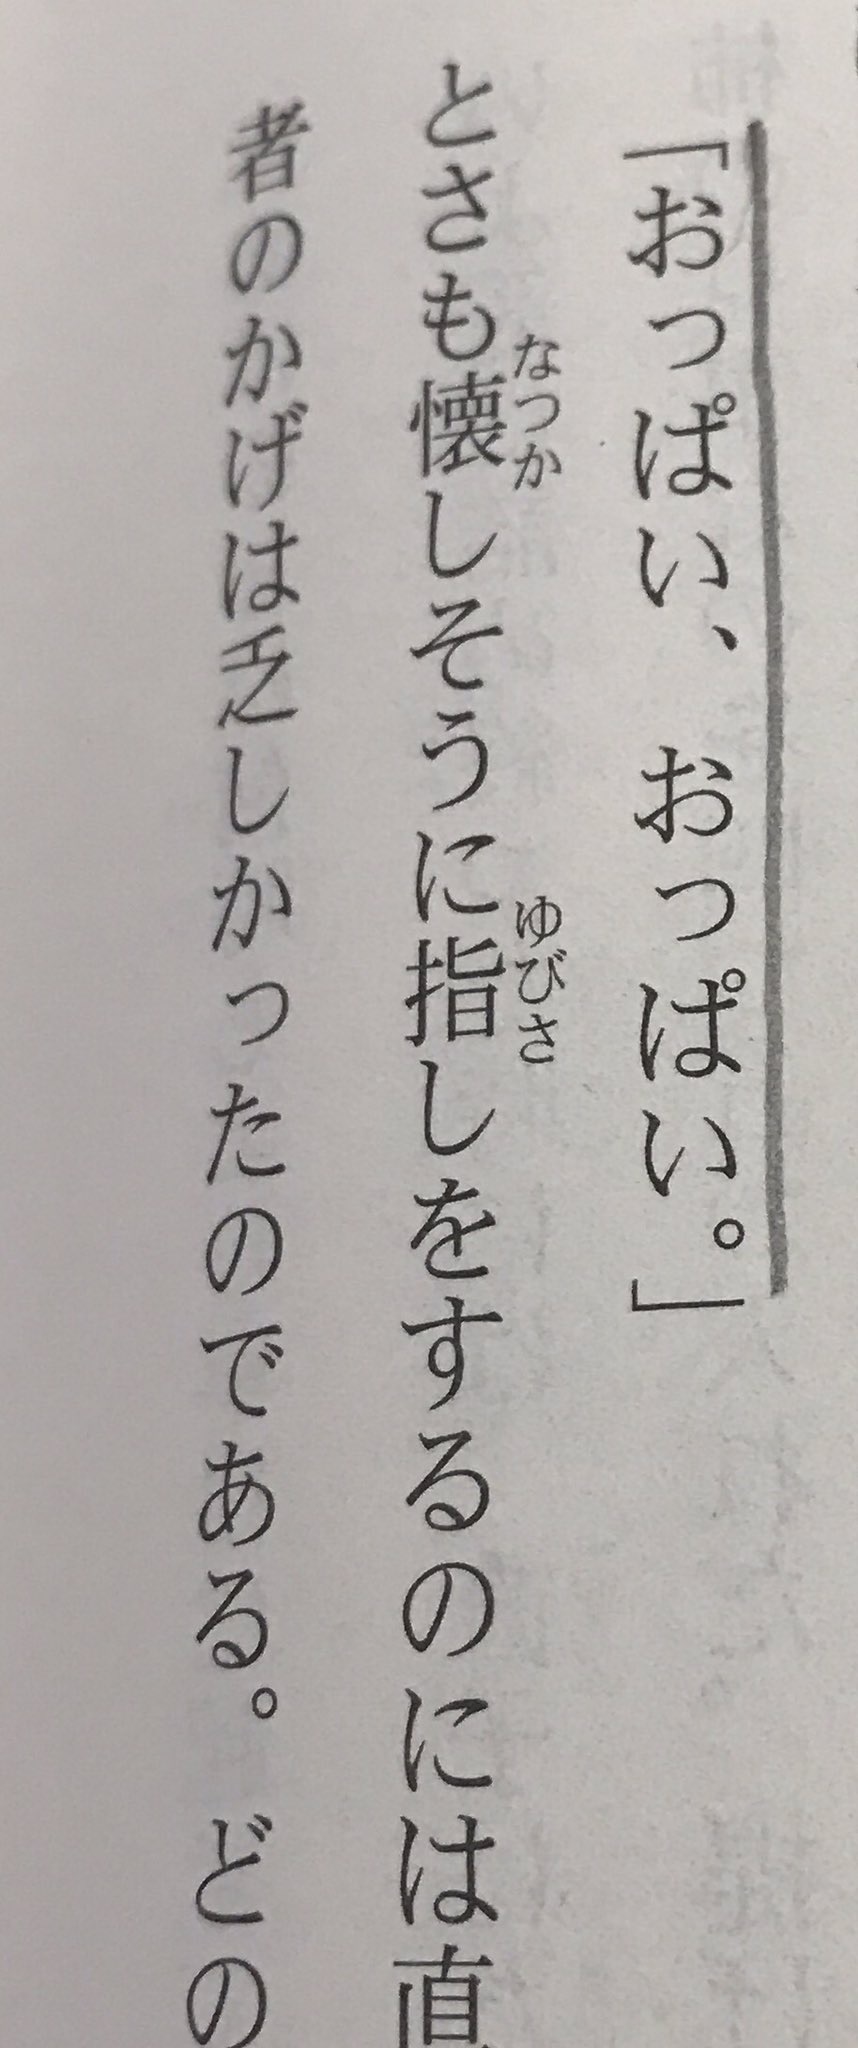 「おっぱい、おっぱい。」
とさも懐しそうに指しをするのには直
者のかげは乏しかったのである。どの